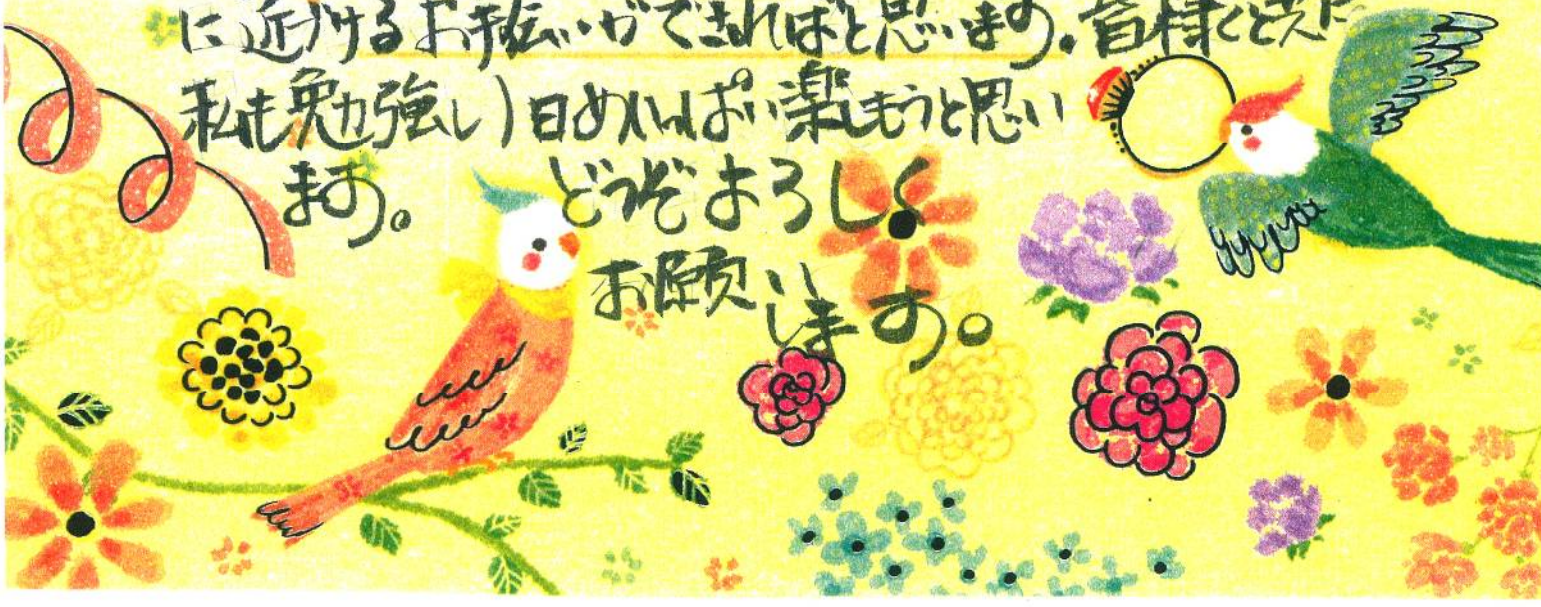 に近づけるお手伝いができればと思います。皆様と
私も勉強し1日めいいっぱい楽しもうと思い
ます。
どうぞよろしく
お願いします。